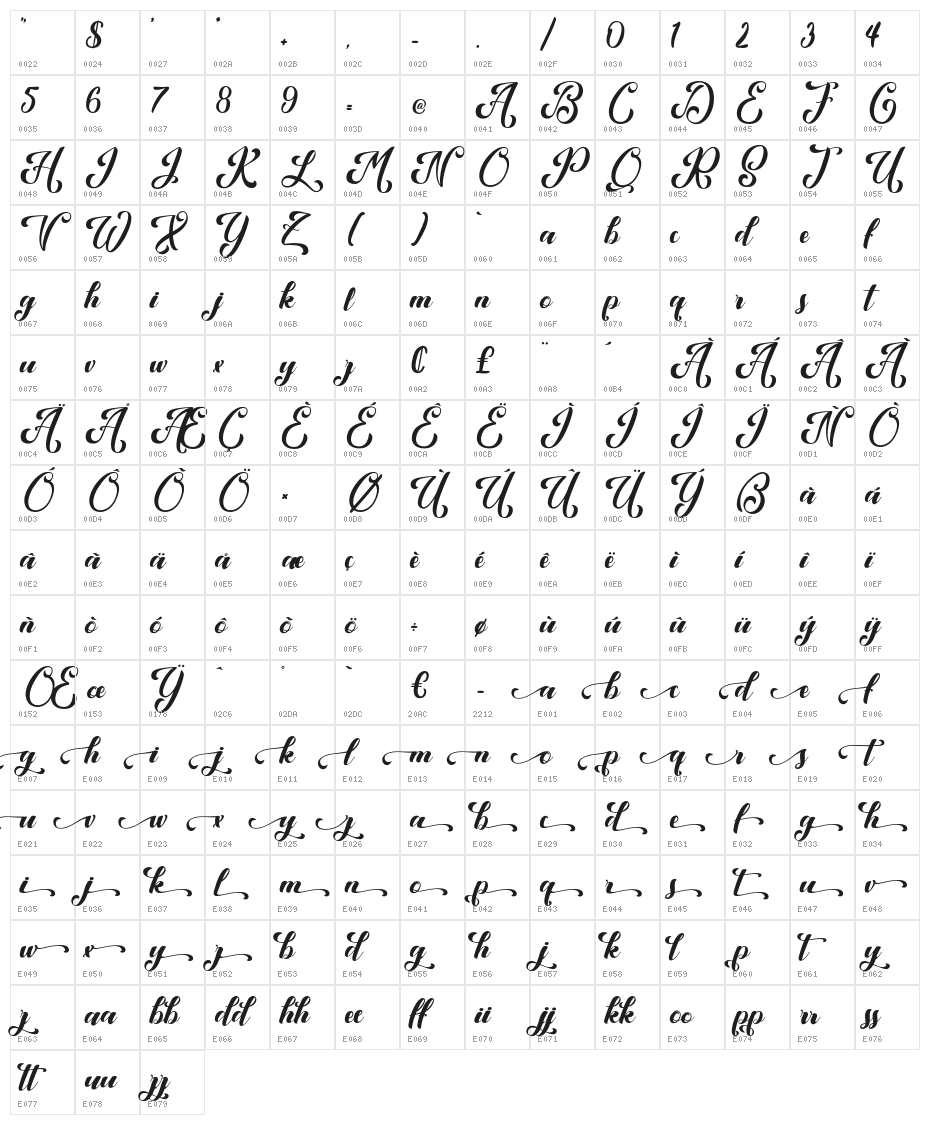 " $ ' * + , - . / 0 1 2 3 4
0022 0024 0027 002A 002B 002C 002D 002E 002F 0030 0031 0032 0033 0034
5 6 7 8 9 = @ A B C D E F G
0035 0036 0037 0038 0039 003D 0040 0041 0042 0043 0044 0045 0046 0047
H I J K L M N O P Q R S T U
0048 0049 004A 004B 004C 004D 004E 004F 0050 0051 0052 0053 0054 0055
V W X Y Z ( ) ` a b c d e f
0056 0057 0058 0059 005A 005B 005D 0060 0061 0062 0063 0064 0065 0066
g h i j k l m n o p q r s t
0067 0068 0069 006A 006B 006C 006D 006E 006F 0070 0071 0072 0073 0074
u v w x y z ₵ £ ¨ ´ À Á Â Ã
0075 0076 0077 0078 0079 007A 00A2 00A3 00A8 00B4 00C0 00C1 00C2 00C3
Ä Å Æ Ç È É Ê Ë Ì Í Î Ï Ñ Ò
00C4 00C5 00C6 00C7 00C8 00C9 00CA 00CB 00CC 00CD 00CE 00CF 00D1 00D2
Ó Ô Õ Ö × Ø Ù Ú Û Ü Ý ß à á
00D3 00D4 00D5 00D6 00D7 00D8 00D9 00DA 00DB 00DC 00DD 00DF 00E0 00E1
â ã ä å æ ç è é ê ë ì í î ï
00E2 00E3 00E4 00E5 00E6 00E7 00E8 00E9 00EA 00EB 00EC 00ED 00EE 00EF
ñ ò ó ô õ ö ÷ ø ù ú û ü ý ÿ
00F1 00F2 00F3 00F4 00F5 00F6 00F7 00F8 00F9 00FA 00FB 00FC 00FD 00FF
Œ œ Ÿ ˆ ˚ ˜ € − a b c d e f
0152 0153 0178 02C6 02DA 02DC 20AC 2212 E001 E002 E003 E004 E005 E006
g h i j k l m n o p q r s t
E007 E008 E009 E010 E011 E012 E013 E014 E015 E016 E017 E018 E019 E020
u v w x y z a b c d e f g h
E021 E022 E023 E024 E025 E026 E027 E028 E029 E030 E031 E032 E033 E034
i j k l m n o p q r s t u v
E035 E036 E037 E038 E039 E040 E041 E042 E043 E044 E045 E046 E047 E048
w x y z b d g h j k l p t y
E049 E050 E051 E052 E053 E054 E055 E056 E057 E058 E059 E060 E061 E062
z aa bb dd hh ee ff ii jj kk oo pp rr ss
E063 E064 E065 E066 E067 E068 E069 E070 E071 E072 E073 E074 E075 E076
tt uu zz
E077 E078 E079